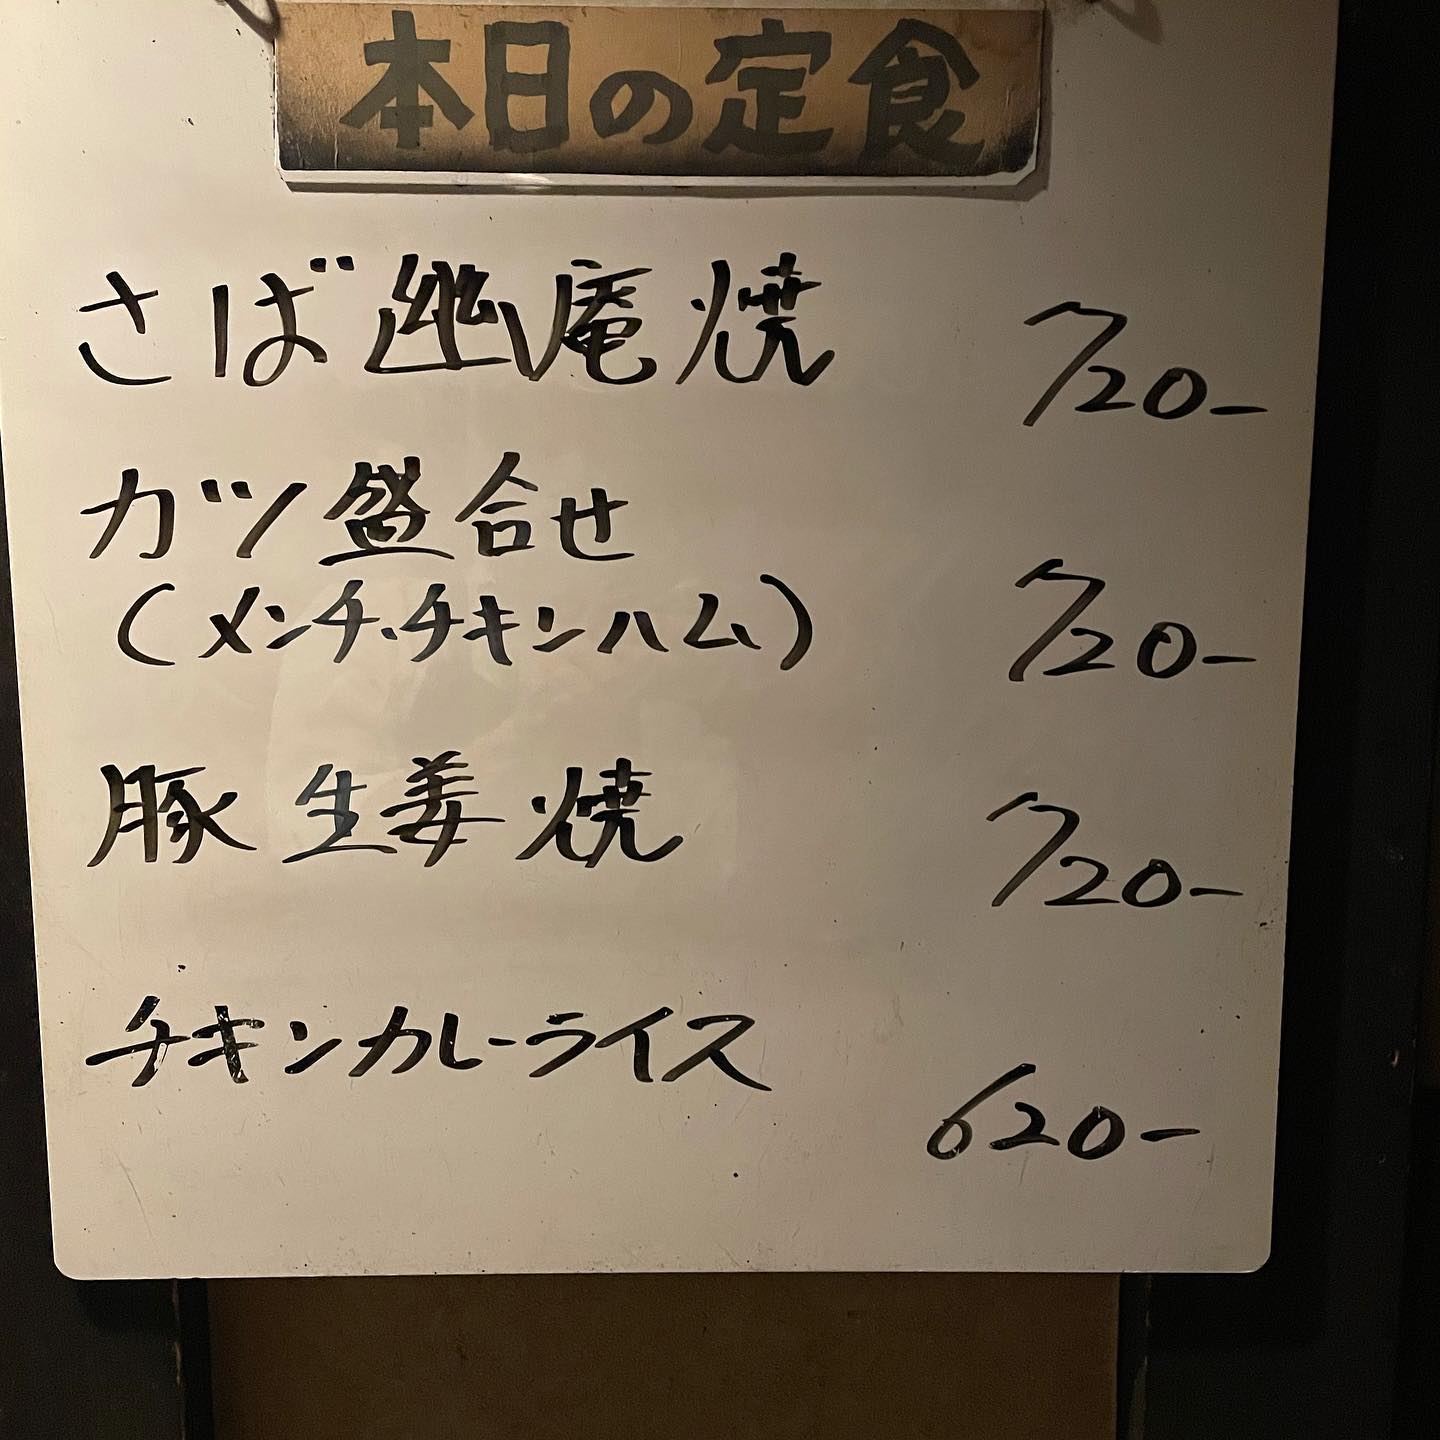 本日の定食
さば幽庵焼 720-
カツ盛合せ
(メンチ、チキンハム) 720-
豚生姜焼 720-
チキンカレーライス
620-